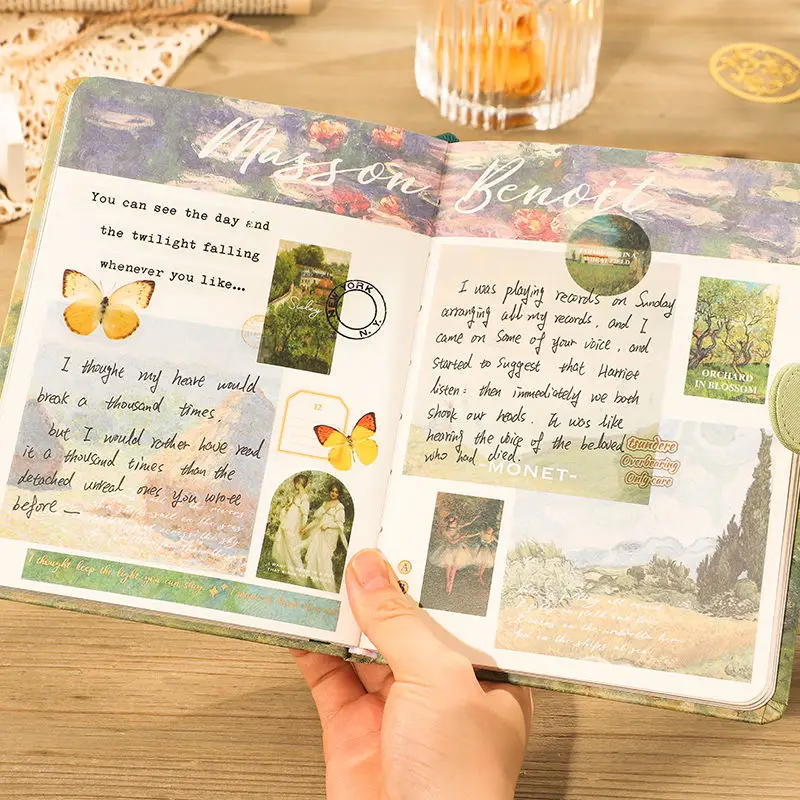 Masson Benoit
You can see the day and
the twilight falling
whenever you like...
Salty
NEW YORK
N.Y.
I thought my heart would
break a thousand times.
but I would rather have read
it a thousand times than the
detached unreal ones you wrote
before —
12
I thought keep the light you run stay
I was playing records on Sunday
arranging all my records, and I
came on some of your voice, and
started to suggest that Harriet
listen: then immediately we both
shook our heads. It was like
hearing the voice of the beloved
who had died.
-MONET-
ORCHARD
IN BLOSSOM
tsundere
Overbearing
Only care
A